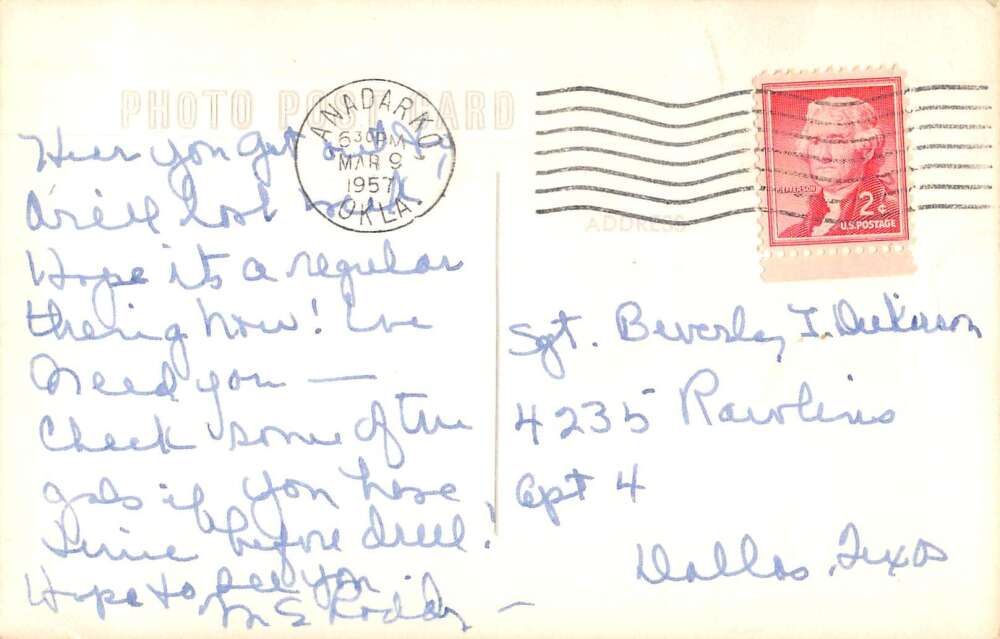 PHOTO POST CARD
ANADARKO
630PM
MAR 9
1957
OKLA.
JEFFERSON
2¢
U.S. POSTAGE
ADDRESS
Hear you got
last week,
Hope its a regular
thing now! We
need you —
Check some of the
gals if you have
time before drill!
Hope to see you
M E Roddy —
Sgt. Beverley I. Dickerson
4235 Rawlins
Apt 4
Dallas, Texas